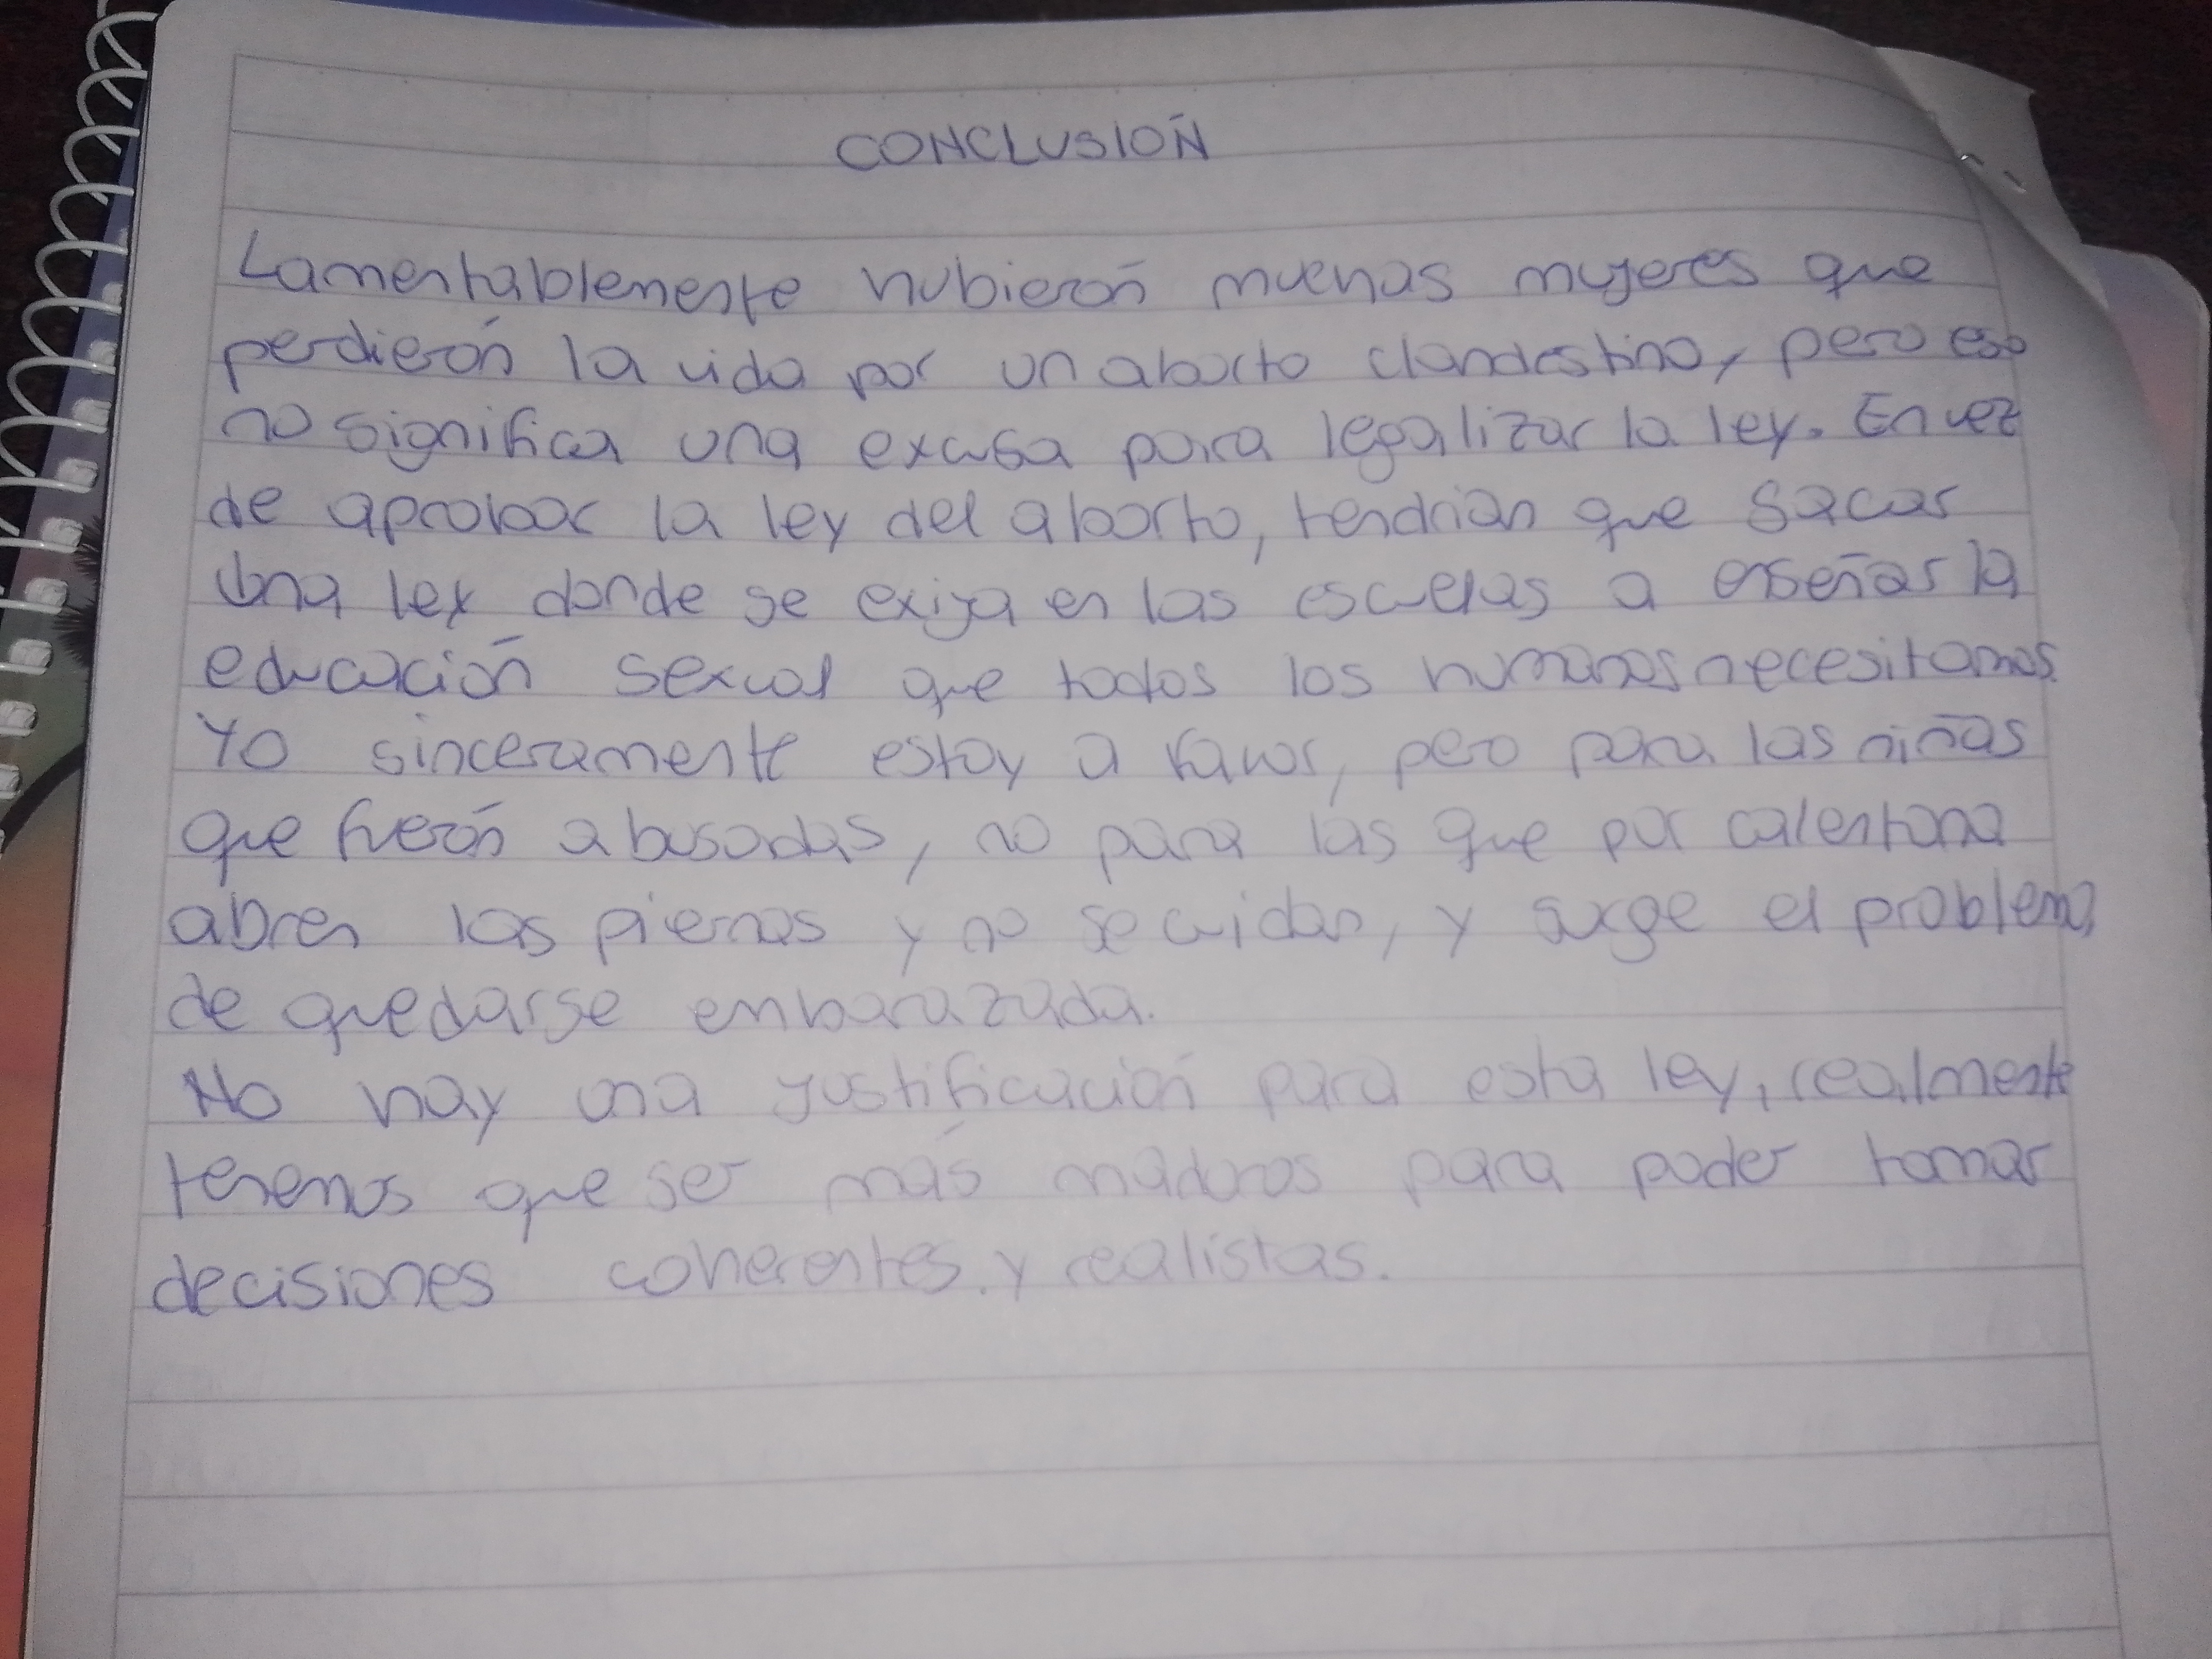 CONCLUSIÓN
Lamentablemente hubierón muchas mujeres que
perdierón la vida por un aborto clandestino, pero eso
no significa una excusa para legalizar la ley. En vez
de aprobar la ley del aborto, tendrian que sacar
una ley donde se exija en las escuelas a enseñar la
educación sexual que todos los humanos necesitamos.
Yo sinceramente estoy a favor, pero para las niñas
que fuerón abusadas, no para las que por calentona
abren las piernas y no se cuidan, y surge el problema
de quedarse embarazada.
No hay una justificación para esta ley, realmente
tenemos que ser más maduros para poder tomar
decisiones coherentes y realistas.